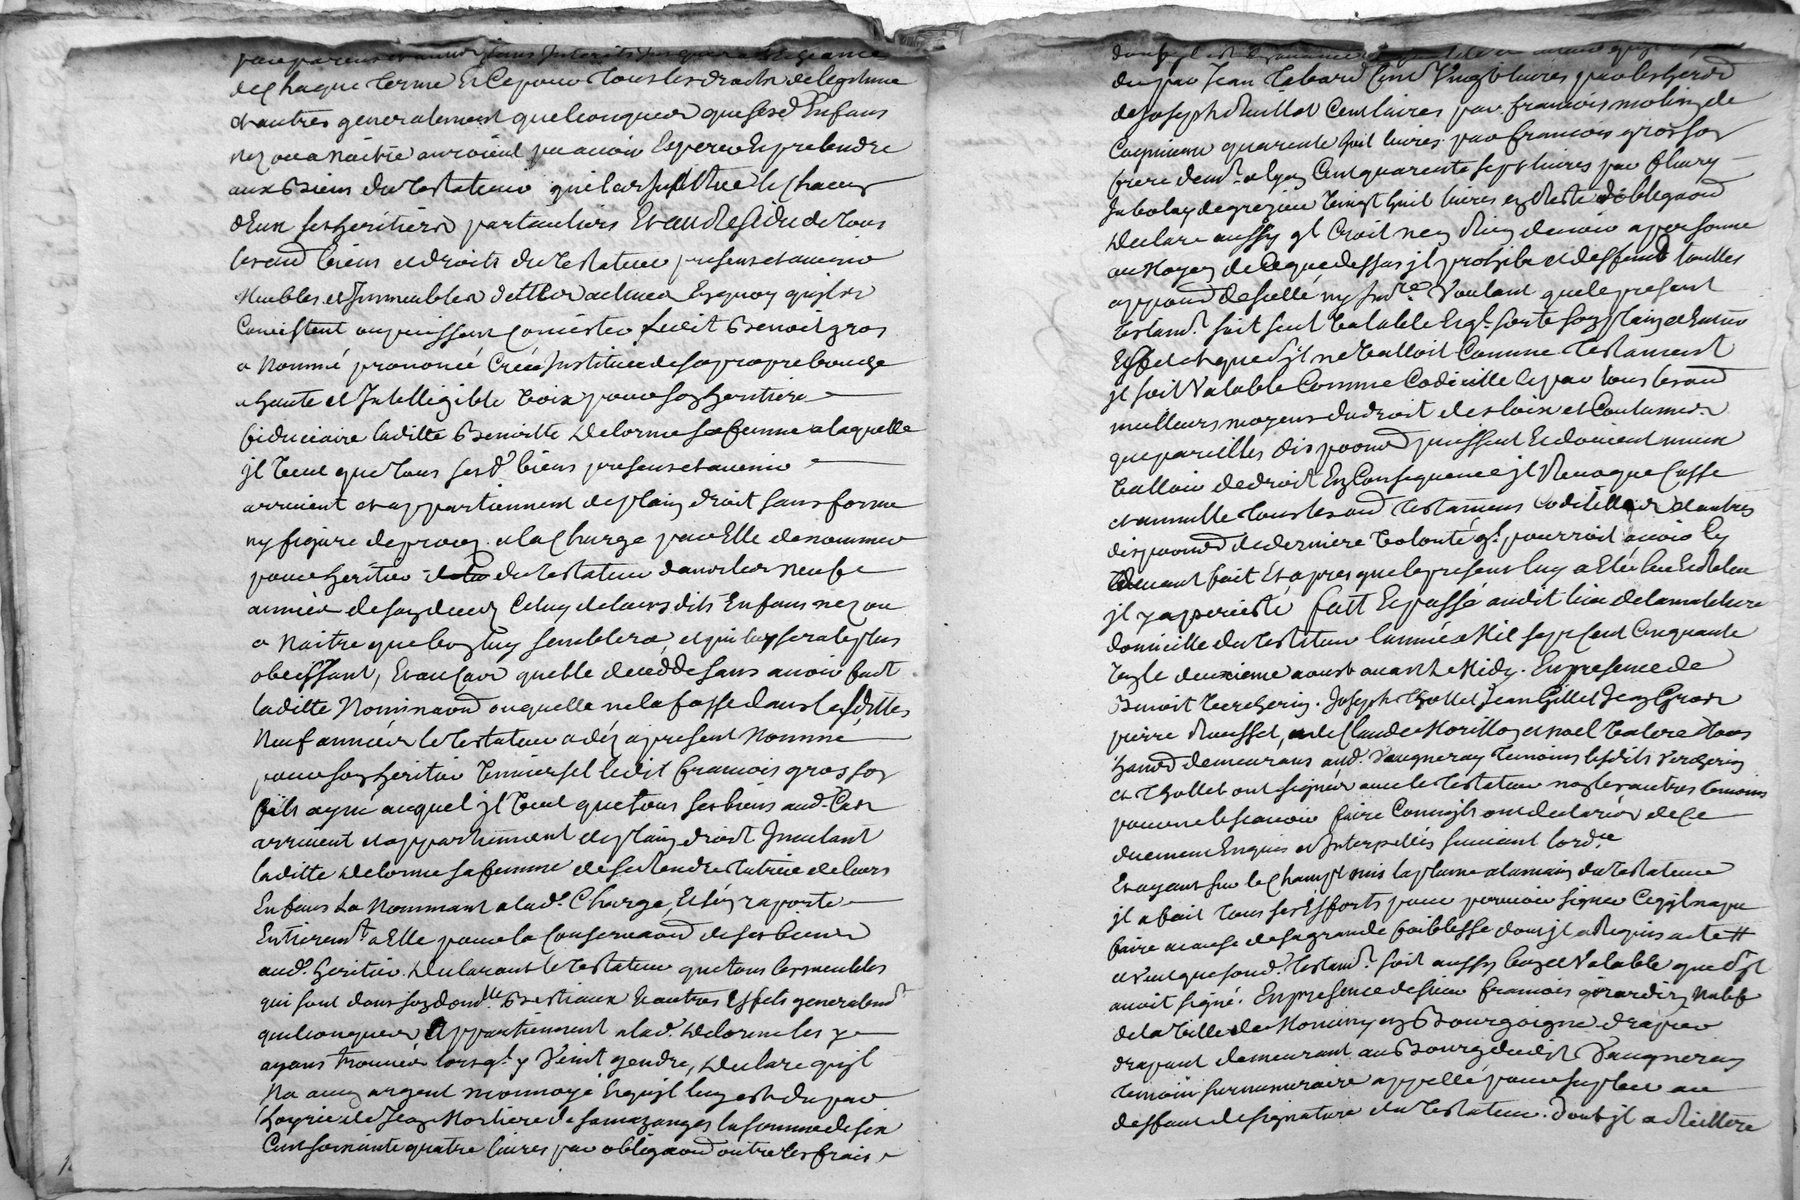 de chaque terme Et Ce pour tous les droits de legitime
et autres generalement quelconques que sesd Enfans
nez ou a naitre auroient pu avoir Esperer Et pretendre
aux Biens du testateur qui les institue le chacun
d'Eux ses heritiers particuliers Et au Residu de tous
les aud biens et droits du testateur presens et avenir
Meubles et Immeubles dettes actives En quoy qu'ils
Consistent ou puissent Consister Ledit Benoit gros
a Nommé prononcé Créé Institué de sa propre bouche
a haute et Intelligible voix pour son heritiere
fiduciaire laditte Benoitte Delorme sa femme a laquelle
jl veut que tous sesd. biens presens et avenir
arrivent et appartiennent de plain droit sans forme
ny figure de procez a la Charge par Elle de nommer
pour heritier du testateur dans les neuf
années de son decez Celuy de leurs dits Enfans nez ou
a Naitre que bon luy semblera, et qui luy sera le plus
obeissant, Et au Cas quelle decedde sans avoir fait
laditte Nominaon ou quelle ne la fasse dans lesdittes
Neuf années le testateur a dez a present Nommé
pour son heritier Universel ledit francois gros son
fils ayné auquel jl veut que tous ses biens aud. Cas
arrivent et appartiennent de plain droit
laditte Delorme sa femme de se Rendre tutrice de leurs
Enfans La Nommant a lad. Charge, Et s'en raporte
Entierem.t a Elle pour la Conservaon de ses biens
aud. heritier. Declarant le testateur que tous les meubles
qui sont dans son dom.lle Bestiaux Et autres Effets generalem.t
quelconques, Appartiennent a lad. Delorme les y
ayans trouvés lorsq.l y Vint gendre, Declare qu'jl
Na aucun argent monnoyé Et qu'jl luy est du par
de Jean Mortier de la somme de six
Cent soixante quatre livres par obligaon outre les frais
du par Jean Cent Vingt livres par les herd
de Joseph Cent livres par francois molin de
quarente huit livres par francois gros son
frere dem.t a lyon Cent quarente sept livres par fleury
de grezieu vingt huit livres en Reste d'obligaon
Declare aussy q.l Croit n'en Rien devoir a personne
au Moyen de Ce que dessus jl prohibe et deffend touttes
appoon de scellé ny Inv.re Voulant que le present
testam.t soit seul Valable Et q.l sorte son plain et Entier
Effet et que s'jl ne Valloit Comme testament
jl soit Valable Comme Codicille Et par tous les aud
meilleurs moyens du droit et des loix et Coutumes
que pareilles dispoons puissent Et doivent mieux
Valloir de droit En Consequence jl Revoque Casse
et annulle tous les aud testamens Codicilles et autres
dispoons de derniere volonté q.l pourroit avoir Cy
devant fait Et apres que le present luy a Eté leu Et Releu
jl y a persisté, fait Et passé audit lieu de
domicille du testateur l'année Mil sept Cent Cinquante
le deuxieme aoust avant Midy. En presence de
Benoit Vercherin, Joseph thollet Jean Gillet Jean Gros
pierre Rousset, Claude Morillon et noel tous
demeurans aud. Vaugneray temoins lesdits Vercherin
et thollet ont signés avec le testateur non les autres temoins
pour ne le scavoir faire Comm'ils ont declarés de Ce
duement Enquis et Interpellés suivant l'ord.ce
Et ayant sur le champ mis la plume a la main du testateur
jl a fait tous ses Efforts pour pouvoir signer Ce qu'jl na pu
faire a cause de sa grande foiblesse dont jl a Requis acte
et Veut que sond. testam.t soit aussy bon et Valable que s'jl
avoit signé. En presence de sieur francois girardin Natif
de la Ville de en Bourgogne drapier
drapant demeurant au Bourg dudit Vaugneray
temoin surnumeraire appellé pour supleer au
deffaut de signature du testateur. Dont jl a Reitteré